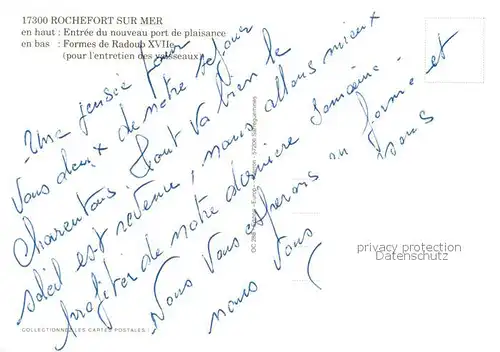 17300 ROCHEFORT SUR MER
en haut : Entrée du nouveau port de plaisance
en bas : Formes de Radoub XVIIe
(pour l'entretien des vaisseaux)
Une pensée pour
vous deux de notre séjour
Charentais. Tout va bien le
soleil est revenu, nous allons mieux
profiter de notre dernière semaine.
Nous vous espérons en forme et
nous vous
privacy protection
Datenschutz
COLLECTIONNEZ LES CARTES POSTALES